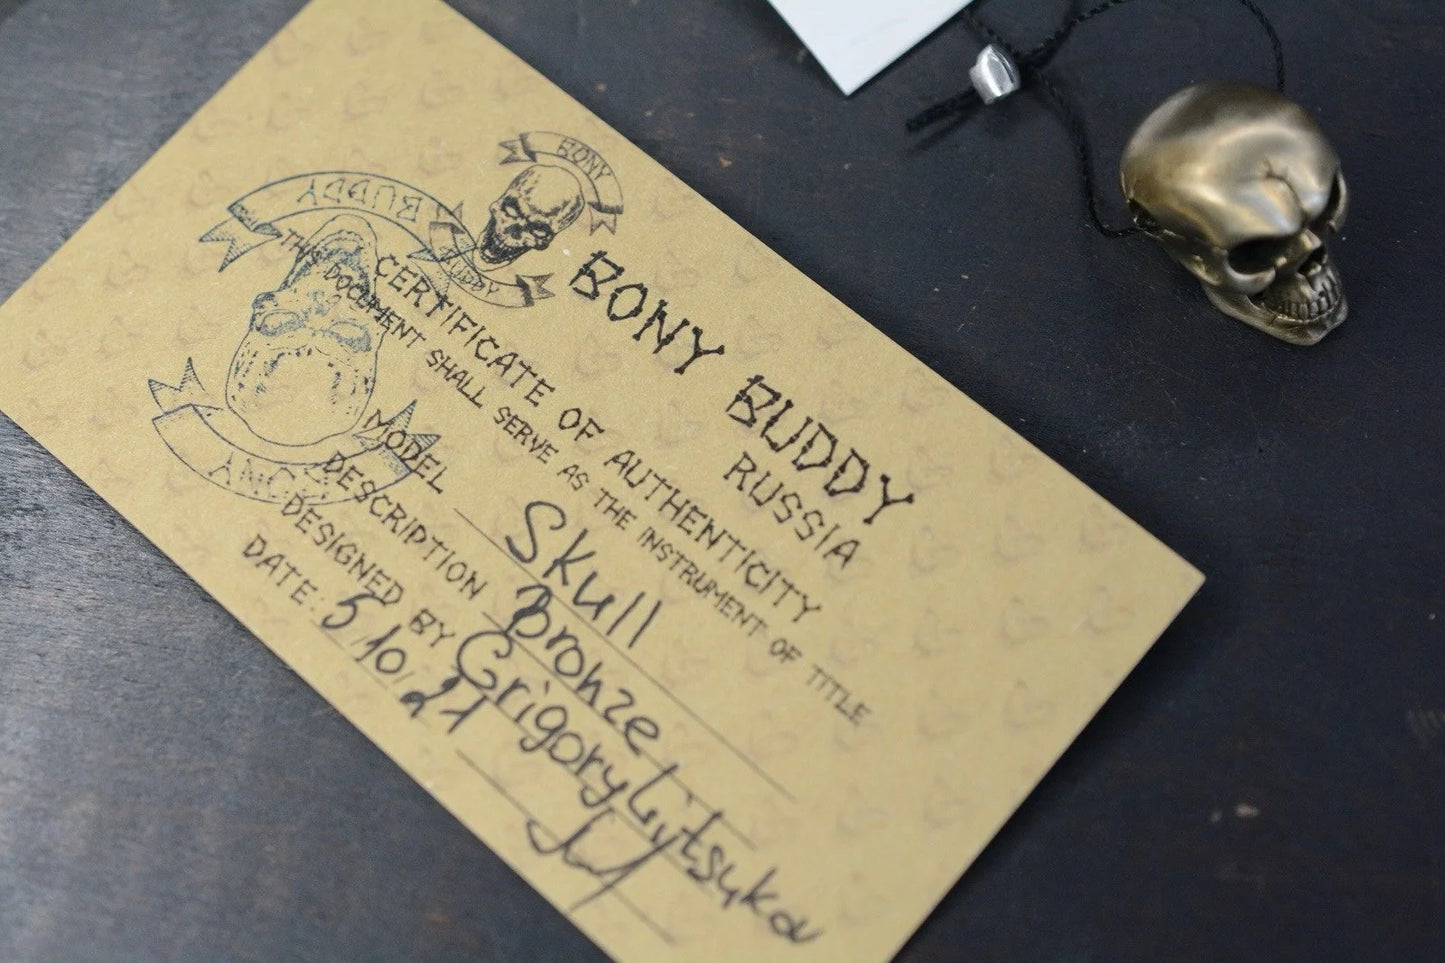 BONY
BUDDY
BONY BUDDY
RUSSIA
CERTIFICATE OF AUTHENTICITY
THIS DOCUMENT SHALL SERVE AS THE INSTRUMENT OF TITLE
MODEL Skull
DESCRIPTION Bronze
DESIGNED BY Grigory Litsykov
DATE: 5/10/21
BUDDY